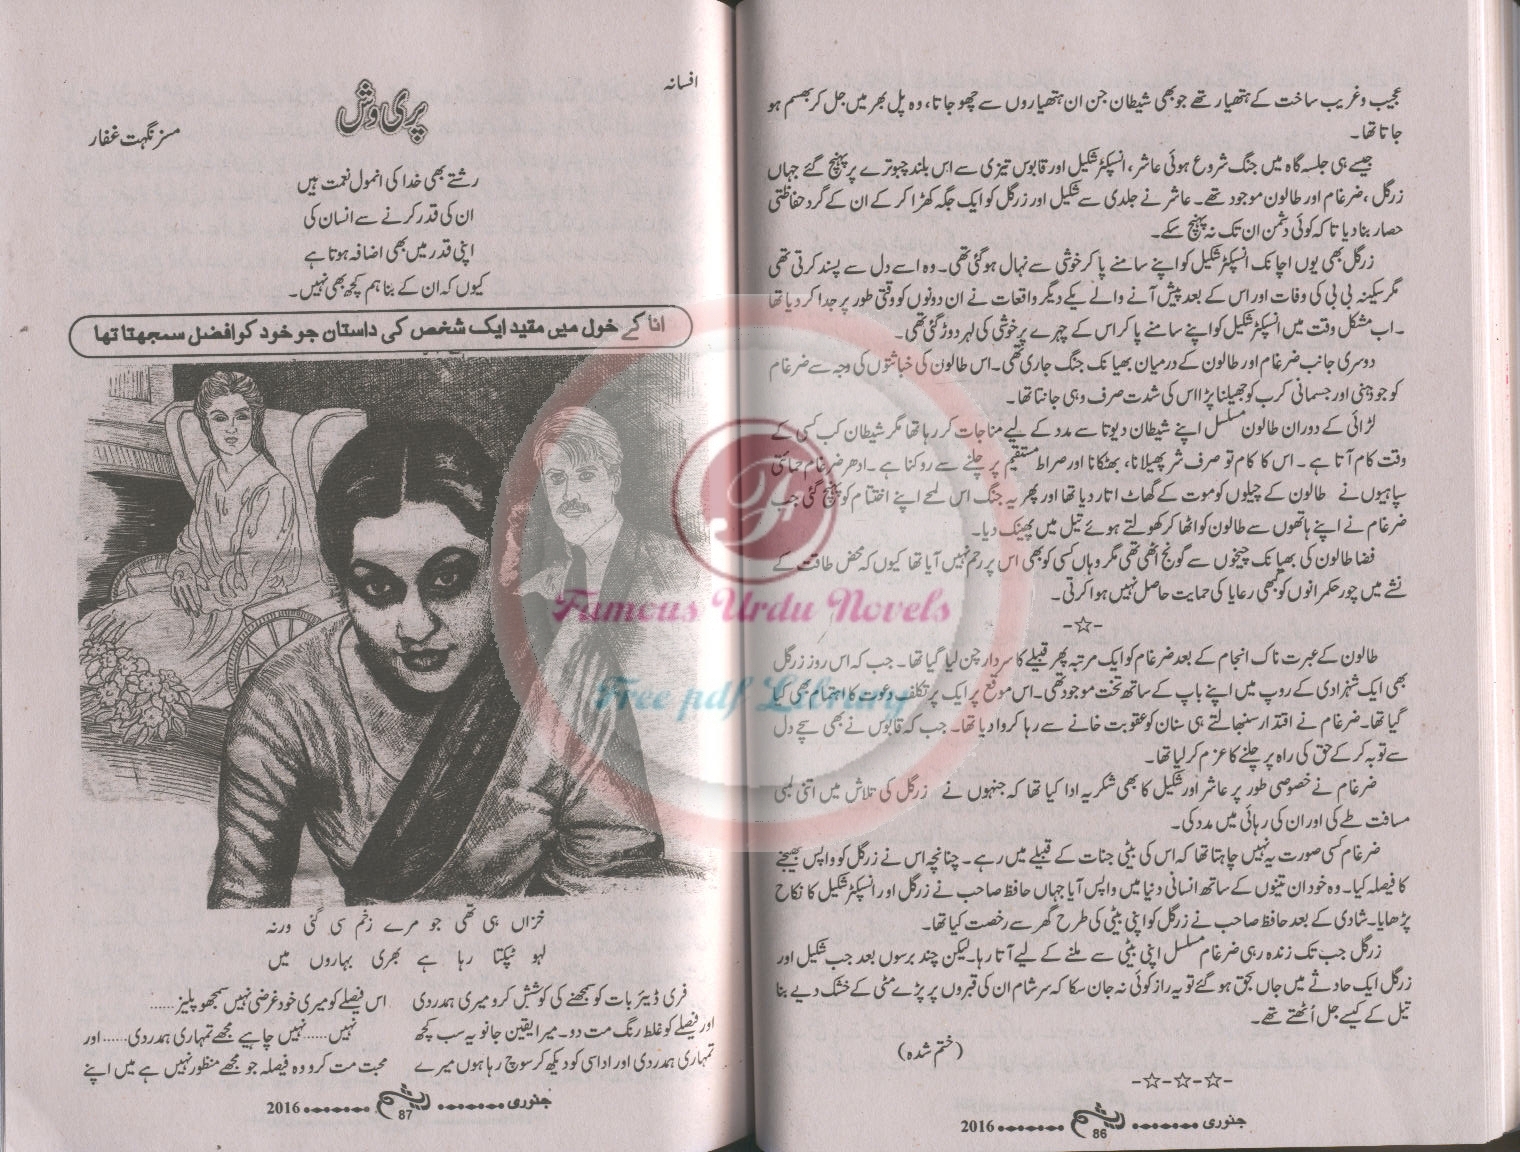 عجیب و غریب ساخت کے ہتھیار تھے جو بھی شیطان جن ان ہتھیاروں سے چھو جاتا، وہ پل بھر میں جل کر بھسم ہو
جاتا تھا۔
جیسے ہی جلسہ گاہ میں جنگ شروع ہوئی عاشر، انسپکٹر شکیل اور قابوس تیزی سے اس بلند چبوترے پر پہنچ گئے جہاں
زرگل، ضرغام اور طالون موجود تھے۔ عاشر نے جلدی سے شکیل اور زرگل کو ایک جگہ کھڑا کر کے ان کے گرد حفاظتی
حصار بنا دیا تاکہ کوئی دشمن ان تک نہ پہنچ سکے۔
زرگل بھی یوں اچانک انسپکٹر شکیل کو اپنے سامنے پا کر خوشی سے نہال ہو گئی تھی۔ وہ اسے دل سے پسند کرتی تھی
مگر سکینہ بی بی کی وفات اور اس کے بعد پیش آنے والے یکے دیگر واقعات نے ان دونوں کو وقتی طور پر جدا کر دیا تھا
۔ اب مشکل وقت میں انسپکٹر شکیل کو اپنے سامنے پا کر اس کے چہرے پر خوشی کی لہر دوڑ گئی تھی۔
دوسری جانب ضرغام اور طالون کے درمیان بھیانک جنگ جاری تھی۔ اس طالون کی خباثتوں کی وجہ سے ضرغام
کو جو ذہنی اور جسمانی کرب کو جھیلنا پڑا اس کی شدت صرف وہی جانتا تھا۔
لڑائی کے دوران طالون مسلسل اپنے شیطان دیوتا سے مدد کے لیے مناجات کر رہا تھا مگر شیطان کب کسی کے
وقت کام آتا ہے۔ اس کا کام تو صرف شر پھیلانا، بھٹکانا اور صراط مستقیم پر چلنے سے روکنا ہے۔ ادھر ضرغام حمائتی
سپاہیوں نے طالون کے چیلوں کو موت کے گھاٹ اتار دیا تھا اور پھر یہ جنگ اس لمحے اپنے اختتام کو پہنچ گئی جب
ضرغام نے اپنے ہاتھوں سے طالون کو اٹھا کر کھولتے ہوئے تیل میں پھینک دیا۔
فضا طالون کی بھیانک چیخوں سے گونج اٹھی تھی مگر وہاں کسی کو بھی اس پر رحم نہیں آیا تھا کیوں کہ محض طاقت کے
نشے میں چور حکمرانوں کو کبھی رعایا کی حمایت حاصل نہیں ہوا کرتی۔
-☆-
طالون کے عبرت ناک انجام کے بعد ضرغام کو ایک مرتبہ پھر قبیلے کا سردار چن لیا گیا تھا۔ جب کہ اس روز زرگل
بھی ایک شہزادی کے روپ میں اپنے باپ کے ساتھ تخت موجود تھی۔ اس موقع پر ایک پر تکلف دعوت کا اہتمام بھی کیا
گیا تھا۔ ضرغام نے اقتدار سنبھالتے ہی سنان کو عقوبت خانے سے رہا کروا دیا تھا۔ جب کہ قابوس نے بھی سچے دل
سے توبہ کر کے حق کی راہ پر چلنے کا عزم کر لیا تھا۔
ضرغام نے خصوصی طور پر عاشر اور شکیل کا بھی شکریہ ادا کیا تھا کہ جنہوں نے زرگل کی تلاش میں اتنی لمبی
مسافت طے کی اور ان کی رہائی میں مدد کی۔
ضرغام کسی صورت یہ نہیں چاہتا تھا کہ اس کی بیٹی جنات کے قبیلے میں رہے۔ چنانچہ اس نے زرگل کو واپس بھیجنے
کا فیصلہ کیا۔ وہ خود ان تینوں کے ساتھ انسانی دنیا میں واپس آیا جہاں حافظ صاحب نے زرگل اور انسپکٹر شکیل کا نکاح
پڑھایا۔ شادی کے بعد حافظ صاحب نے زرگل کو اپنی بیٹی کی طرح گھر سے رخصت کیا تھا۔
زرگل جب تک زندہ رہی ضرغام مسلسل اپنی بیٹی سے ملنے کے لیے آتا رہا۔ لیکن چند برسوں بعد جب شکیل اور
زرگل ایک حادثے میں جاں بحق ہو گئے تو یہ راز کوئی نہ جان سکا کہ سر شام ان کی قبروں پر پڑے مٹی کے خشک دیے بنا
تیل کے کیسے جل اُٹھتے تھے۔
(ختم شدہ)
-☆-☆-☆-
جنوری ........ 86 ........ 2016
افسانہ
پری وش
مسز نگہت غفار
رشتے بھی خدا کی انمول نعمت ہیں
ان کی قدر کرنے سے انسان کی
اپنی قدر میں بھی اضافہ ہوتا ہے
کیوں کہ ان کے بنا ہم کچھ بھی نہیں۔
انا کے خول میں مقید ایک شخص کی داستان جو خود کو افضل سمجھتا تھا
خزاں ہی تھی جو مرے زخم سی گئی ورنہ
لہو ٹپکتا رہا ہے بھری بہاروں میں
فری ڈیئر بات کو سمجھنے کی کوشش کرو میری ہمدردی
اور فیصلے کو غلط رنگ مت دو۔ میرا یقین جانو یہ سب کچھ
تمہاری ہمدردی اور اداسی کو دیکھ کر سوچ رہا ہوں میرے
اس فیصلے کو میری خود غرضی نہیں سمجھو پلیز......
نہیں...... نہیں چاہیے مجھے تمہاری ہمدردی...... اور
محبت مت کرو وہ فیصلہ جو مجھے منظور نہیں ہے میں اپنے
جنوری ........ 87 ........ 2016
Famous Urdu Novels
Free pdf Library